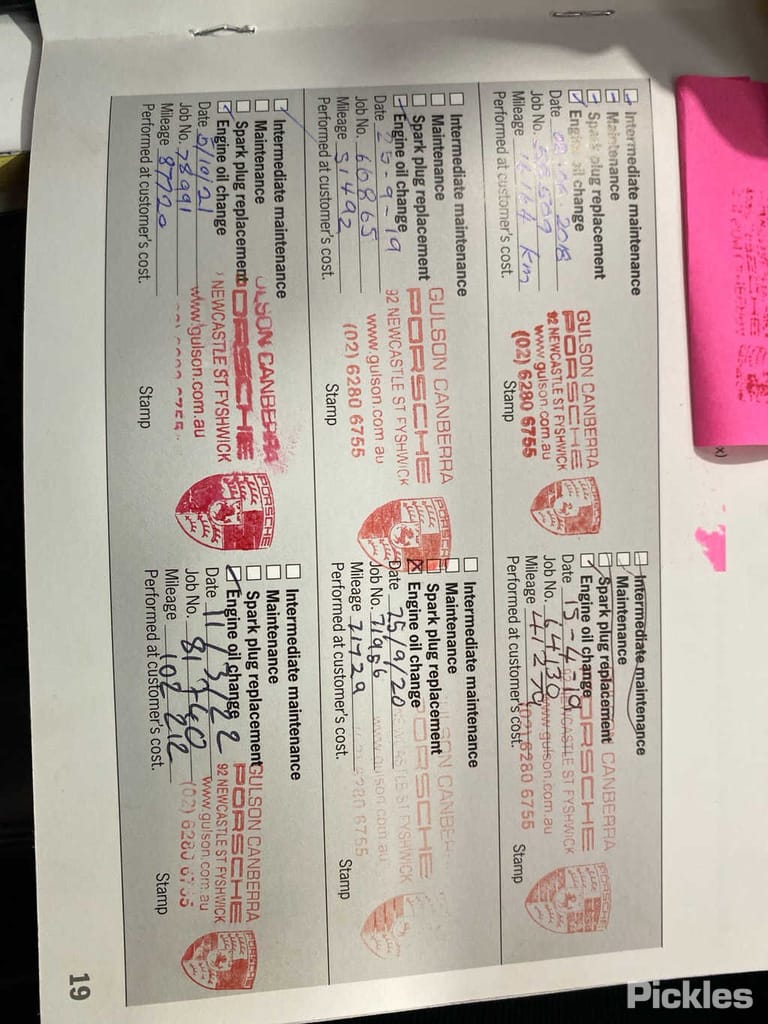 Intermediate maintenance
Maintenance
Spark plug replacement
Engine oil change
Date
Job No.
Mileage 16164 km
Performed at customer's cost.
GULSON CANBERRA
PORSCHE
92 NEWCASTLE ST FYSHWICK
www.gulson.com.au
(02) 6280 6755
Stamp
PORSCHE
Intermediate maintenance
Maintenance
Spark plug replacement
Engine oil change
Date 15-4-19
Job No. 64130
Mileage 41279
Performed at customer's cost.
CANBERRA
PORSCHE
NEWCASTLE ST FYSHWICK
www.gulson.com.au
(02) 6280 6755
Stamp
Intermediate maintenance
Maintenance
Spark plug replacement
Engine oil change
Date 25-9-19
Job No. 66865
Mileage 51492
Performed at customer's cost.
GULSON CANBERRA
PORSCHE
92 NEWCASTLE ST FYSHWICK
www.gulson.com.au
(02) 6280 6755
Stamp
PORSCHE
Intermediate maintenance
Maintenance
Spark plug replacement
Engine oil change
Date 25/9/20
Job No. 71956
Mileage 71729
Performed at customer's cost.
PORSCHE
ST FYSHWICK
www.gulson.com.au
6280 6755
Stamp
Intermediate maintenance
Maintenance
Spark plug replacement
Engine oil change
Date 5/10/21
Job No. 78991
Mileage 87720
Performed at customer's cost.
GULSON CANBERRA
PORSCHE
NEWCASTLE ST FYSHWICK
www.gulson.com.au
Stamp
PORSCHE
Intermediate maintenance
Maintenance
Spark plug replacement
Engine oil change
Date 11/3/22
Job No. 81740
Mileage 102 212
Performed at customer's cost.
GULSON CANBERRA
PORSCHE
92 NEWCASTLE ST FYSHWICK
www.gulson.com.au
(02) 6280 6755
Stamp
PORSCHE
19
Pickles